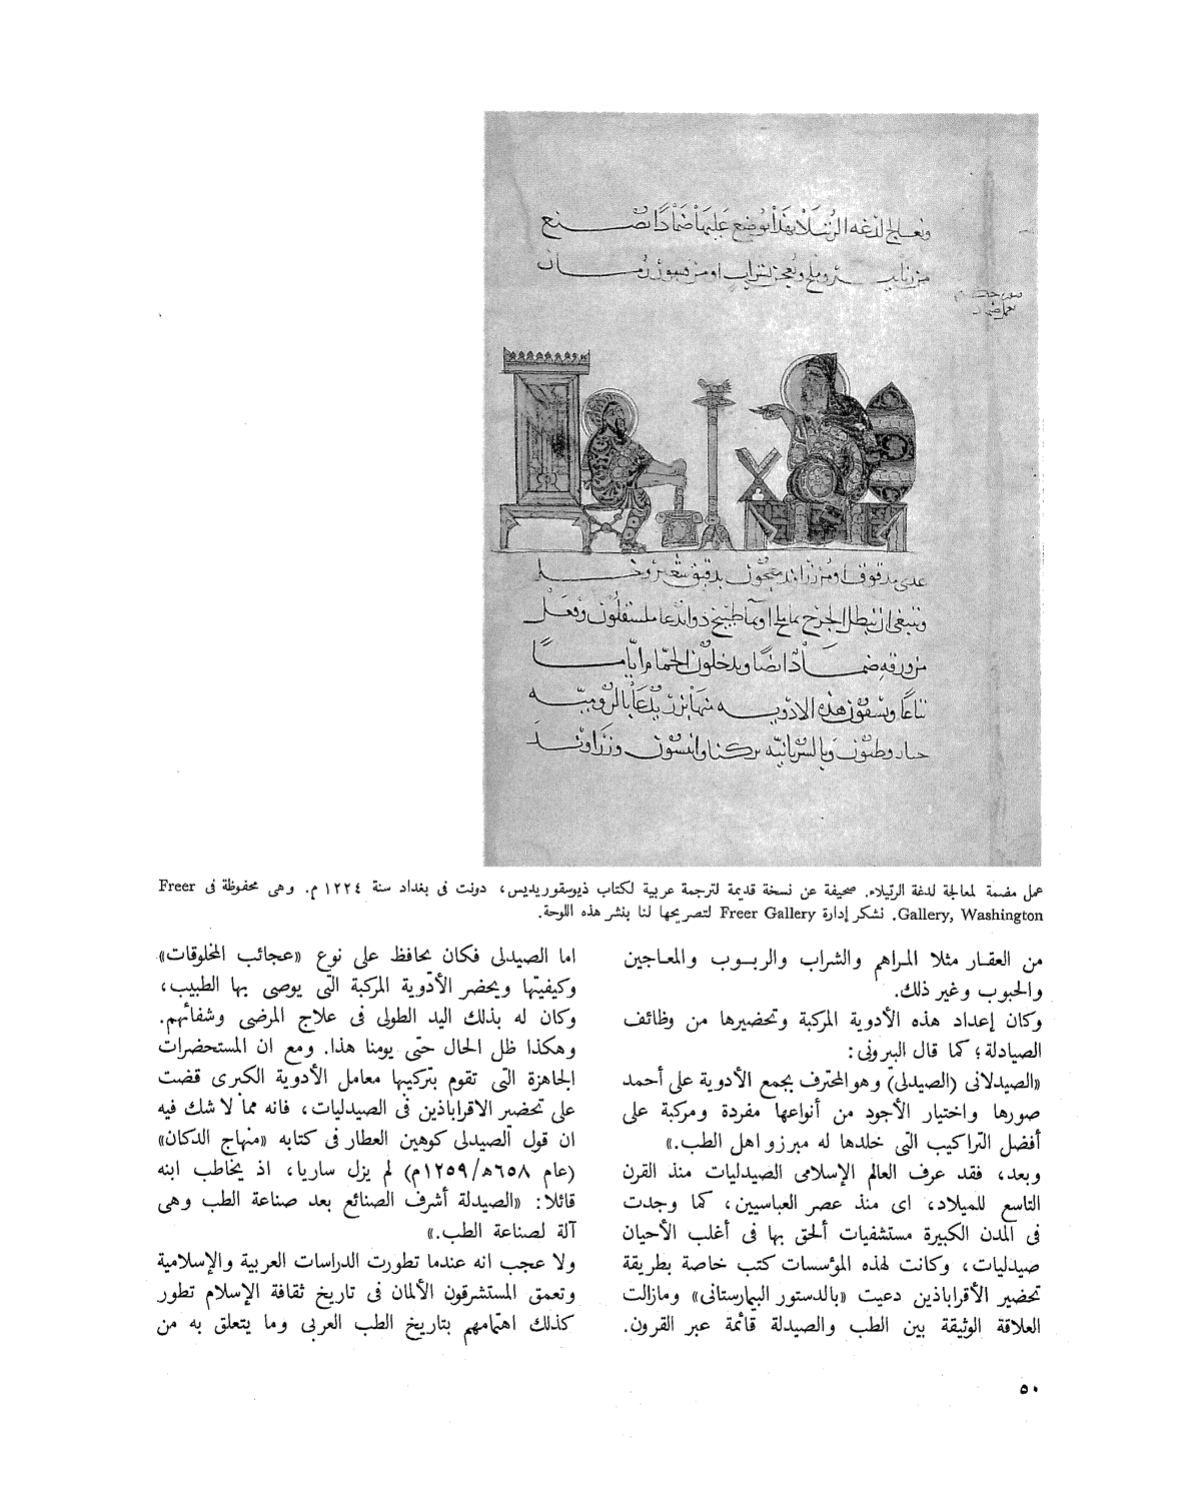 وتعالج لدغة الرتيلا بهذا يوضع عليها ضمادًا يصنع
وملح ويعجن بشراب او من قشور رمان
عمل ضماد
وينبغي ان يبطل الجرح بماء
من ورقه ضمادًا ايضًا ويدخلون الحمام ايامًا
تباعًا ويسقون هذه الادويه منها بزر بالروميه
وبالسريانيه وانيسون وزراوند
عمل مضمة لمعالجة لدغة الرتيلاء. صحيفة عن نسخة قديمة لترجمة عربية لكتاب ذيوسقوريديس، دونت فى بغداد سنة ١٢٢٤ م. وهى محفوظة فى Freer
Gallery, Washington. نشكر إدارة Freer Gallery لتصريحها لنا بنشر هذه اللوحة.
من العقار مثلا المراهم والشراب والربوب والمعاجين
والحبوب وغير ذلك.
وكان إعداد هذه الأدوية المركبة وتحضيرها من وظائف
الصيادلة؛ كما قال البيرونى:
«الصيدلانى (الصيدلى) وهو المحترف بجمع الأدوية على أحمد
صورها واختيار الأجود من أنواعها مفردة ومركبة على
أفضل التراكيب التى خلدها له مبرزو اهل الطب.»
وبعد، فقد عرف العالم الإسلامى الصيدليات منذ القرن
التاسع للميلاد، اى منذ عصر العباسيين، كما وجدت
فى المدن الكبيرة مستشفيات ألحق بها فى أغلب الأحيان
صيدليات، وكانت لهذه المؤسسات كتب خاصة بطريقة
تحضير الأقراباذين دعيت «بالدستور البيمارستانى» ومازالت
العلاقة الوثيقة بين الطب والصيدلة قائمة عبر القرون.
اما الصيدلى فكان يحافظ على نوع «عجائب المخلوقات»
وكيفيتها ويحضر الأدوية المركبة التى يوصى بها الطبيب،
وكان له بذلك اليد الطولى فى علاج المرضى وشفائهم.
وهكذا ظل الحال حتى يومنا هذا. ومع ان المستحضرات
الجاهزة التى تقوم بتركيبها معامل الأدوية الكبرى قضت
على تحضير الاقراباذين فى الصيدليات، فانه مما لا شك فيه
ان قول الصيدلى كوهين العطار فى كتابه «منهاج الدكان»
(عام ٦٥٨ه/١٢٥٩م) لم يزل ساريا، اذ يخاطب ابنه
قائلا: «الصيدلة أشرف الصنائع بعد صناعة الطب وهى
آلة لصناعة الطب.»
ولا عجب انه عندما تطورت الدراسات العربية والإسلامية
وتعمق المستشرقون الألمان فى تاريخ ثقافة الإسلام تطور
كذلك اهتمامهم بتاريخ الطب العربى وما يتعلق به من
٥٠